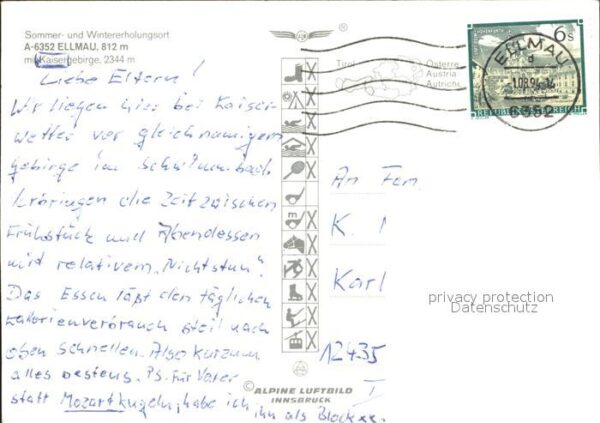 Sommer- und Wintererholungsort
A-6352 ELLMAU, 812 m
mit Kaisergebirge, 2344 m
Liebe Eltern!
Wir liegen hier bei Kaiser-
wetter vor gleichnamigem
gebirge im Schwimmbad
bringen die Zeit zwischen
Frühstück und Abendessen
mit relativem „Nichtstun".
Das Essen läßt den täglichen
Kalorienverbrauch steil nach
oben schnellen. Also kurzum
alles bestens. Ps. Für Vater
statt Mozartkugeln, habe ich ihn als Block xx.
Tirol
Österreich
Austria
Autriche
m
ALPINE LUFTBILD
INNSBRUCK
6s
REPUBLIK ÖSTERREICH
ELLMAU
a
1.08.94-14
6352
An Fam.
K.
Karl
12435
I
privacy protection
Datenschutz